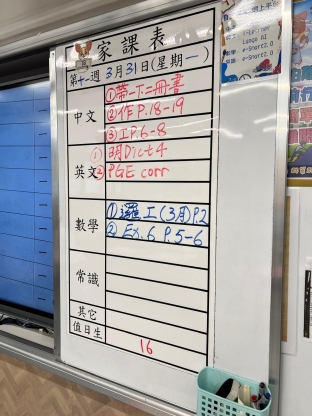 家課表
第十一週 3月31日(星期一)
中文
①帶一下二冊書
②作 P.18-19
③工P.6-8
英文
①明Dict 4
②PGE corr
數學
①邏工(3月)P2
②Ex.6 P.5-6
常識
其它
值日生
16